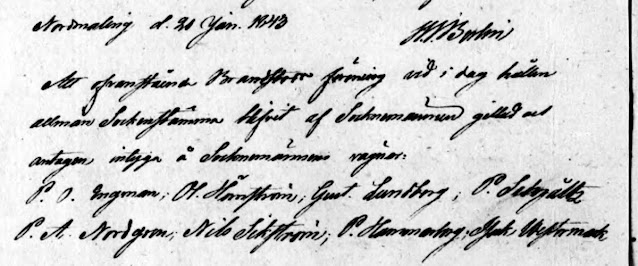 Nordmaling d. 21 Jan. 1843
Att ofvanstående Brandstods förening vid i dag hållen
allmän Sockenstämma blifvit af Socknemännen gillad och
antagen intyga å Socknemännens vägnar:
P. O. Engman; Ol. Hamström; Gust. Lundberg; P.
P. A. Nordgren; Nils Sikström; P. Hammarberg; Jak Westermark